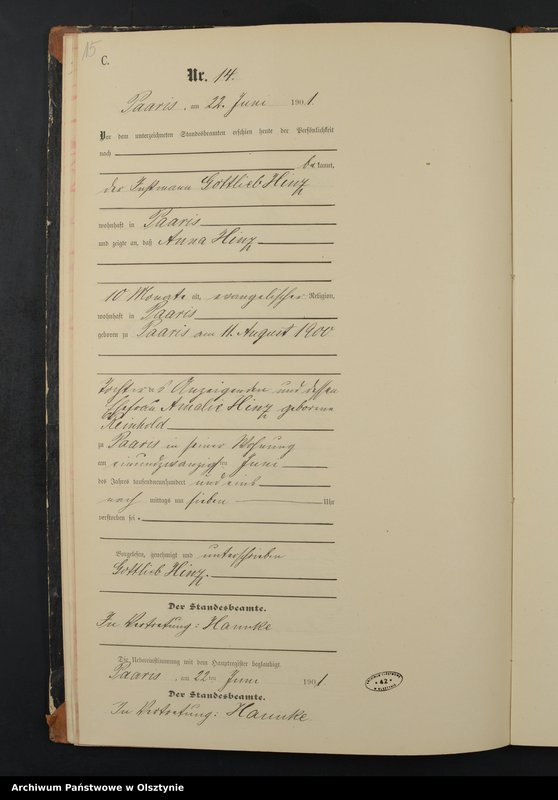 15
C.
Nr. 14.
Paaris, am 22. Juni 1901.
Vor dem unterzeichneten Standesbeamten erschien heute der Persönlichkeit
nach
bekannt,
der Instmann Gottlieb Hinz
wohnhaft in Paaris
und zeigte an, daß Anna Hinz
10 Monate alt, evangelischer Religion,
wohnhaft in Paaris
geboren zu Paaris am 11. August 1900
Tochter des Anzeigenden und dessen
Ehefrau Amalie Hinz geborene
Reinhold
zu Paaris in seiner Wohnung
am einundzwanzigsten Juni
des Jahres tausendneunhundert und eins
nach mittags um sieben Uhr
verstorben sei.
Vorgelesen, genehmigt und unterschrieben
Gottlieb Hinz.
Der Standesbeamte.
In Vertretung: Hannke
Die Uebereinstimmung mit dem Hauptregister beglaubigt.
Paaris, am 22ten Juni 1901.
Der Standesbeamte.
In Vertretung: Hannke
42
Archiwum Państwowe w Olsztynie